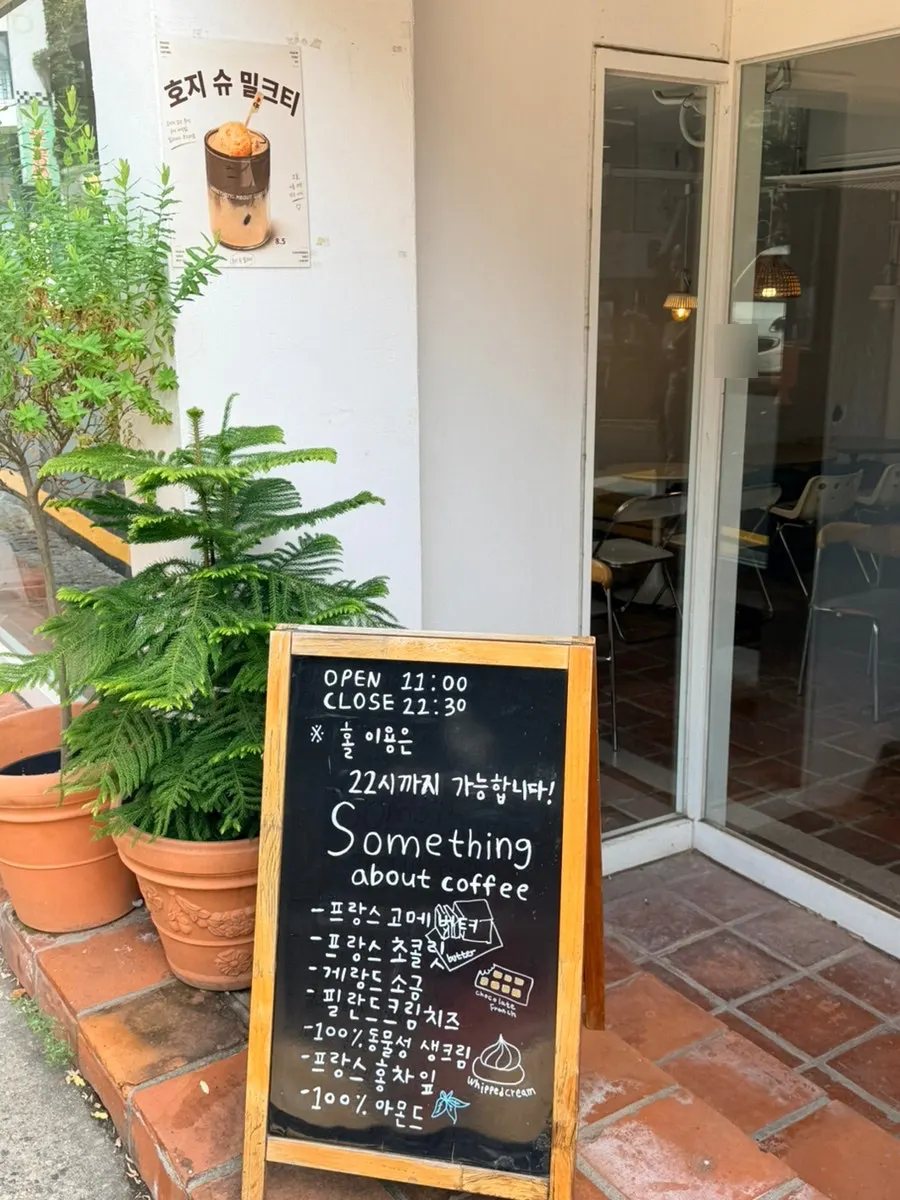 호지 슈 밀크티
8.3
OPEN 11:00
CLOSE 22:30
※ 홀 이용은
22시까지 가능합니다!
Something
about coffee
-프랑스 고메버터
butter
-프랑스 초콜릿
-게랑드 소금
chocolate
French
-필란드크림치즈
-100%동물성 생크림
whippedcream
-프랑스 홍차잎
-100% 아몬드